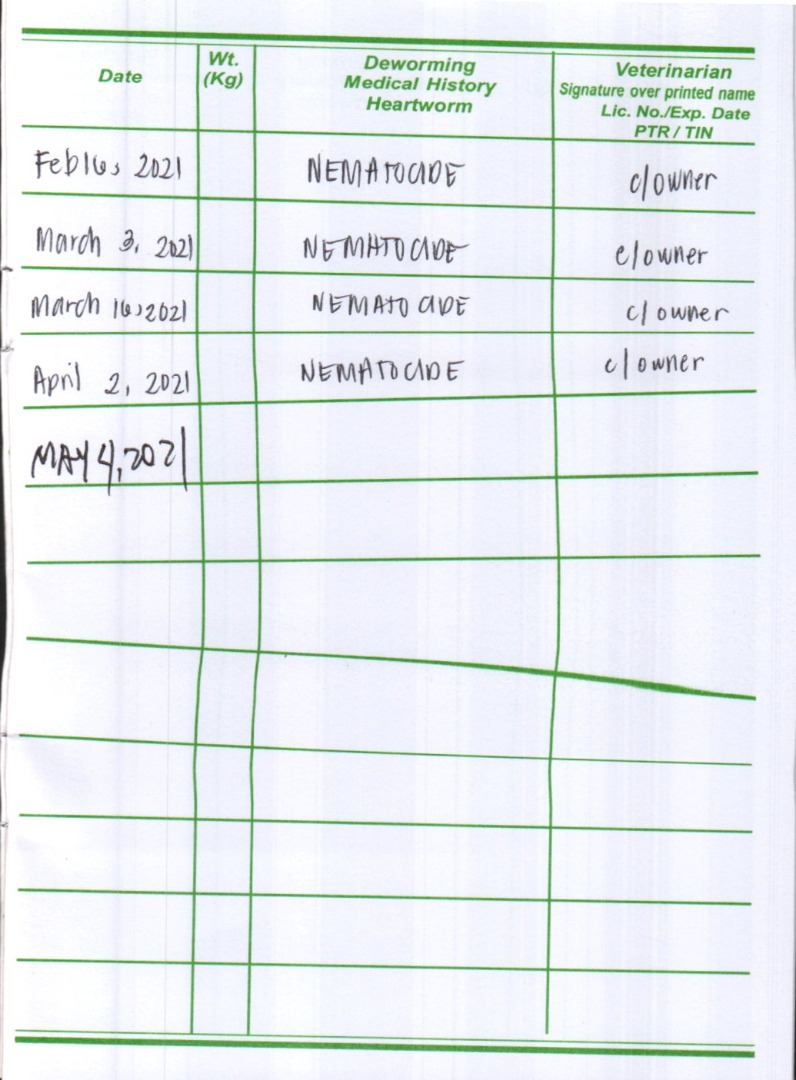 Date Wt. (Kg) Deworming Medical History Heartworm Veterinarian Signature over printed name Lic. No./Exp. Date PTR / TIN
Feb 16, 2021 NEMATOCIDE c/owner
March 3, 2021 NEMATOCIDE c/owner
March 16, 2021 NEMATOCIDE c/owner
April 2, 2021 NEMATOCIDE c/owner
MAY 4, 2021